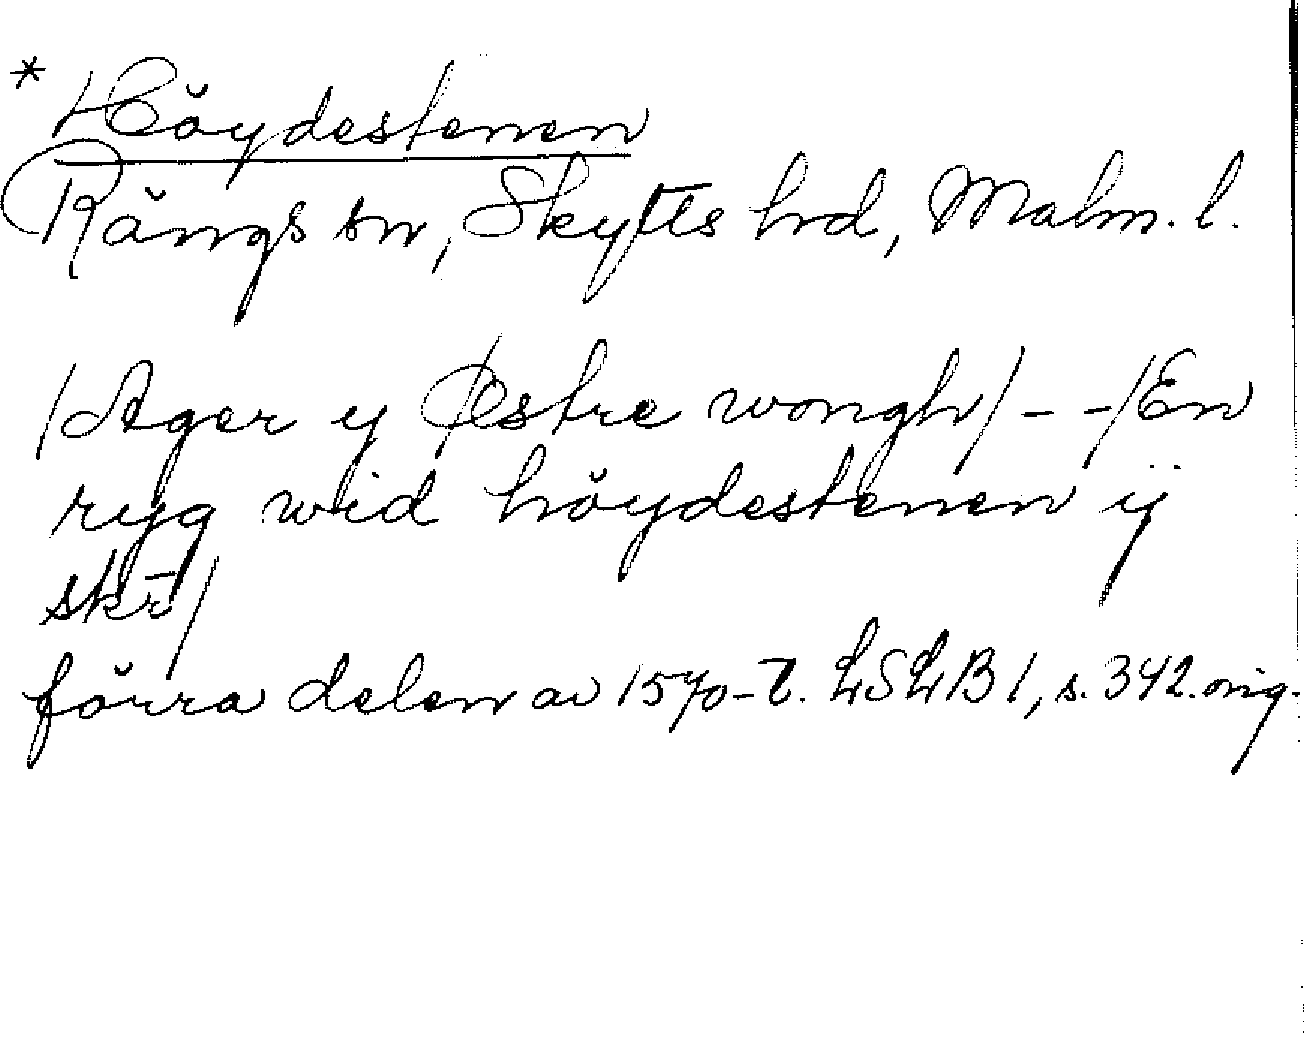 * Höydestenen
Rängs sn, Skytts hd, Malm. l.
/Ager y Østre wongh/ - - /En
ryg wid höydestenen ÿ
skr̄/
förra delen av 1570-t. LSLB 1, s. 342. orig.